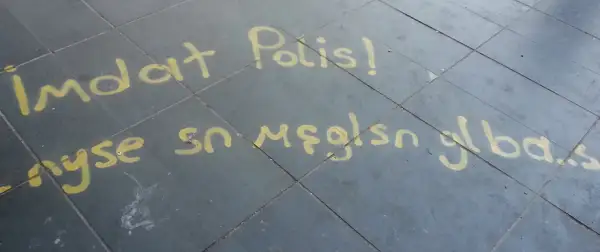 İmdat Polis!
nyse sn Mşglsn glba..s